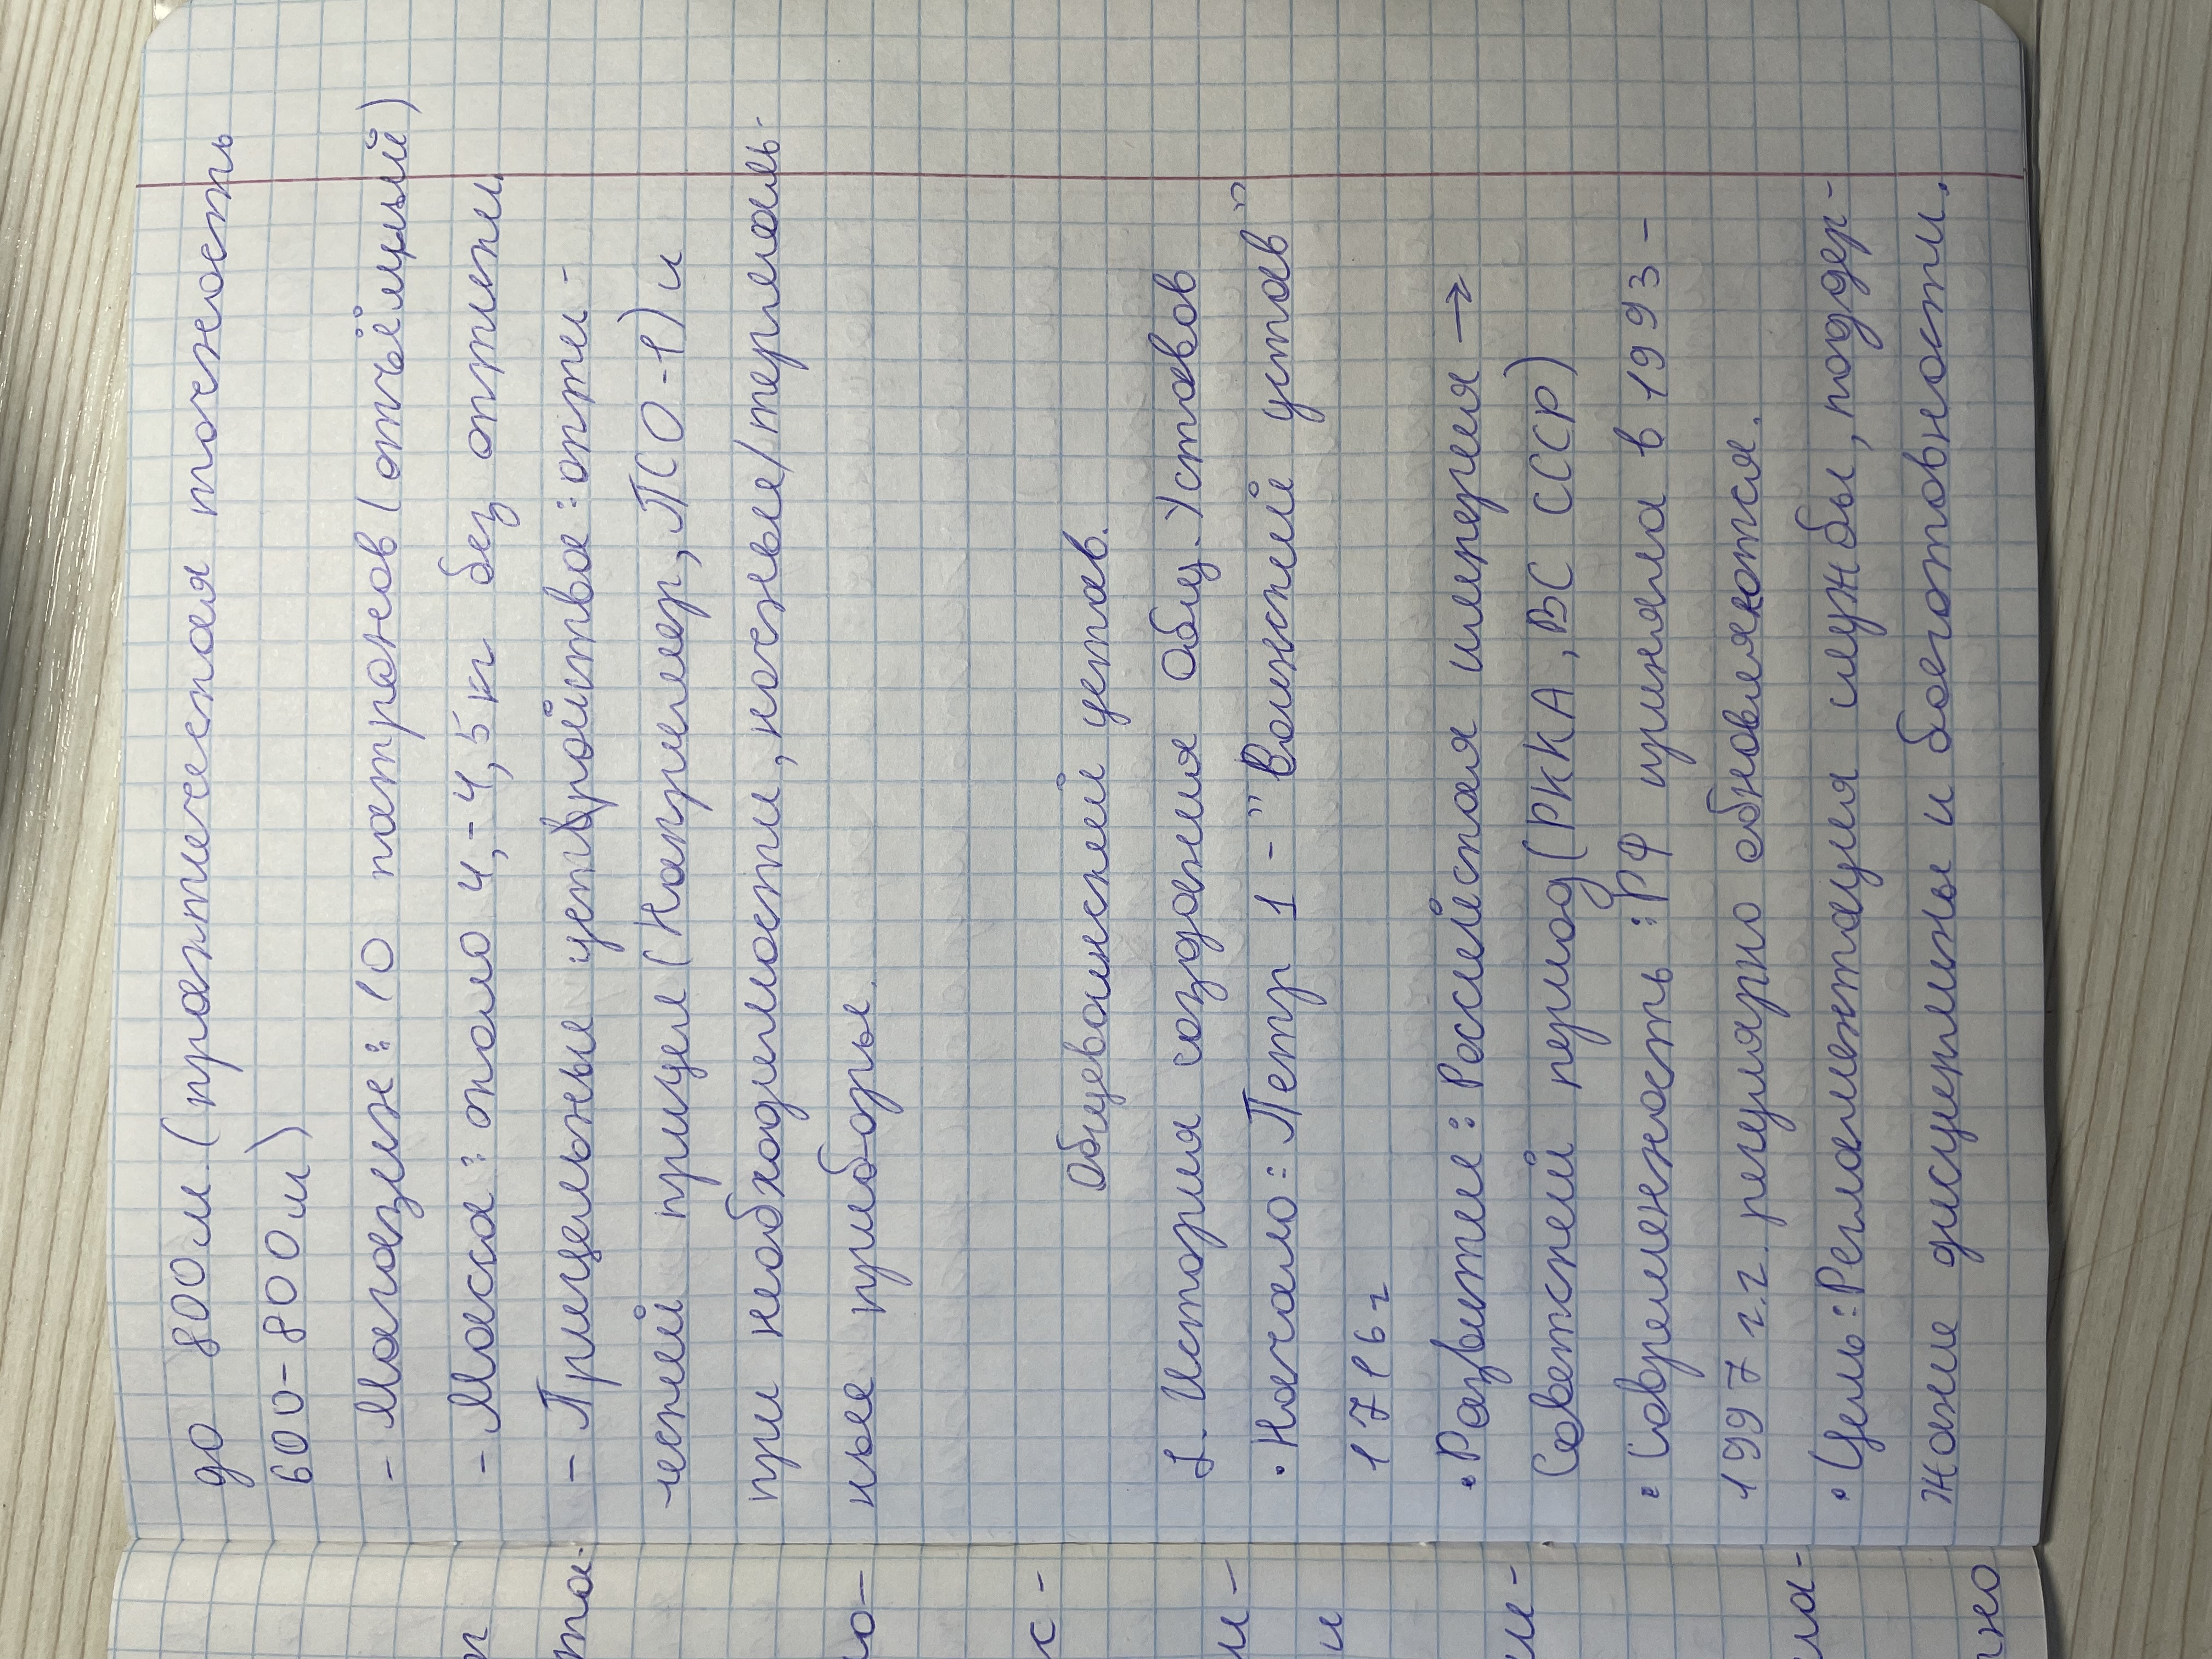 до 800м. (практическая точность
600-800м)
- Магазин: 10 патронов (отъёмный)
- Масса: около 4,-4,5кг без оптики.
- Прицельные устройства: опти-
ческий прицел (Например, ПСО-1) и
при необходимости, ночные/термаль-
ные приборы.
Общевоинский устав.
1. История создания Общ. Уставов
• Начало: Петр 1 - "Воинский устав"
1716г
• Развитие: Российская империя →
Советский период (РККА, ВС СССР)
• Современность: РФ приняла в 1993-
1997 г.г. регулярно обновляются.
• Цель: Регламентация службы, поддер-
жание дисциплины и боеготовности.
та-
о-
с-
и-
и
ла-
но